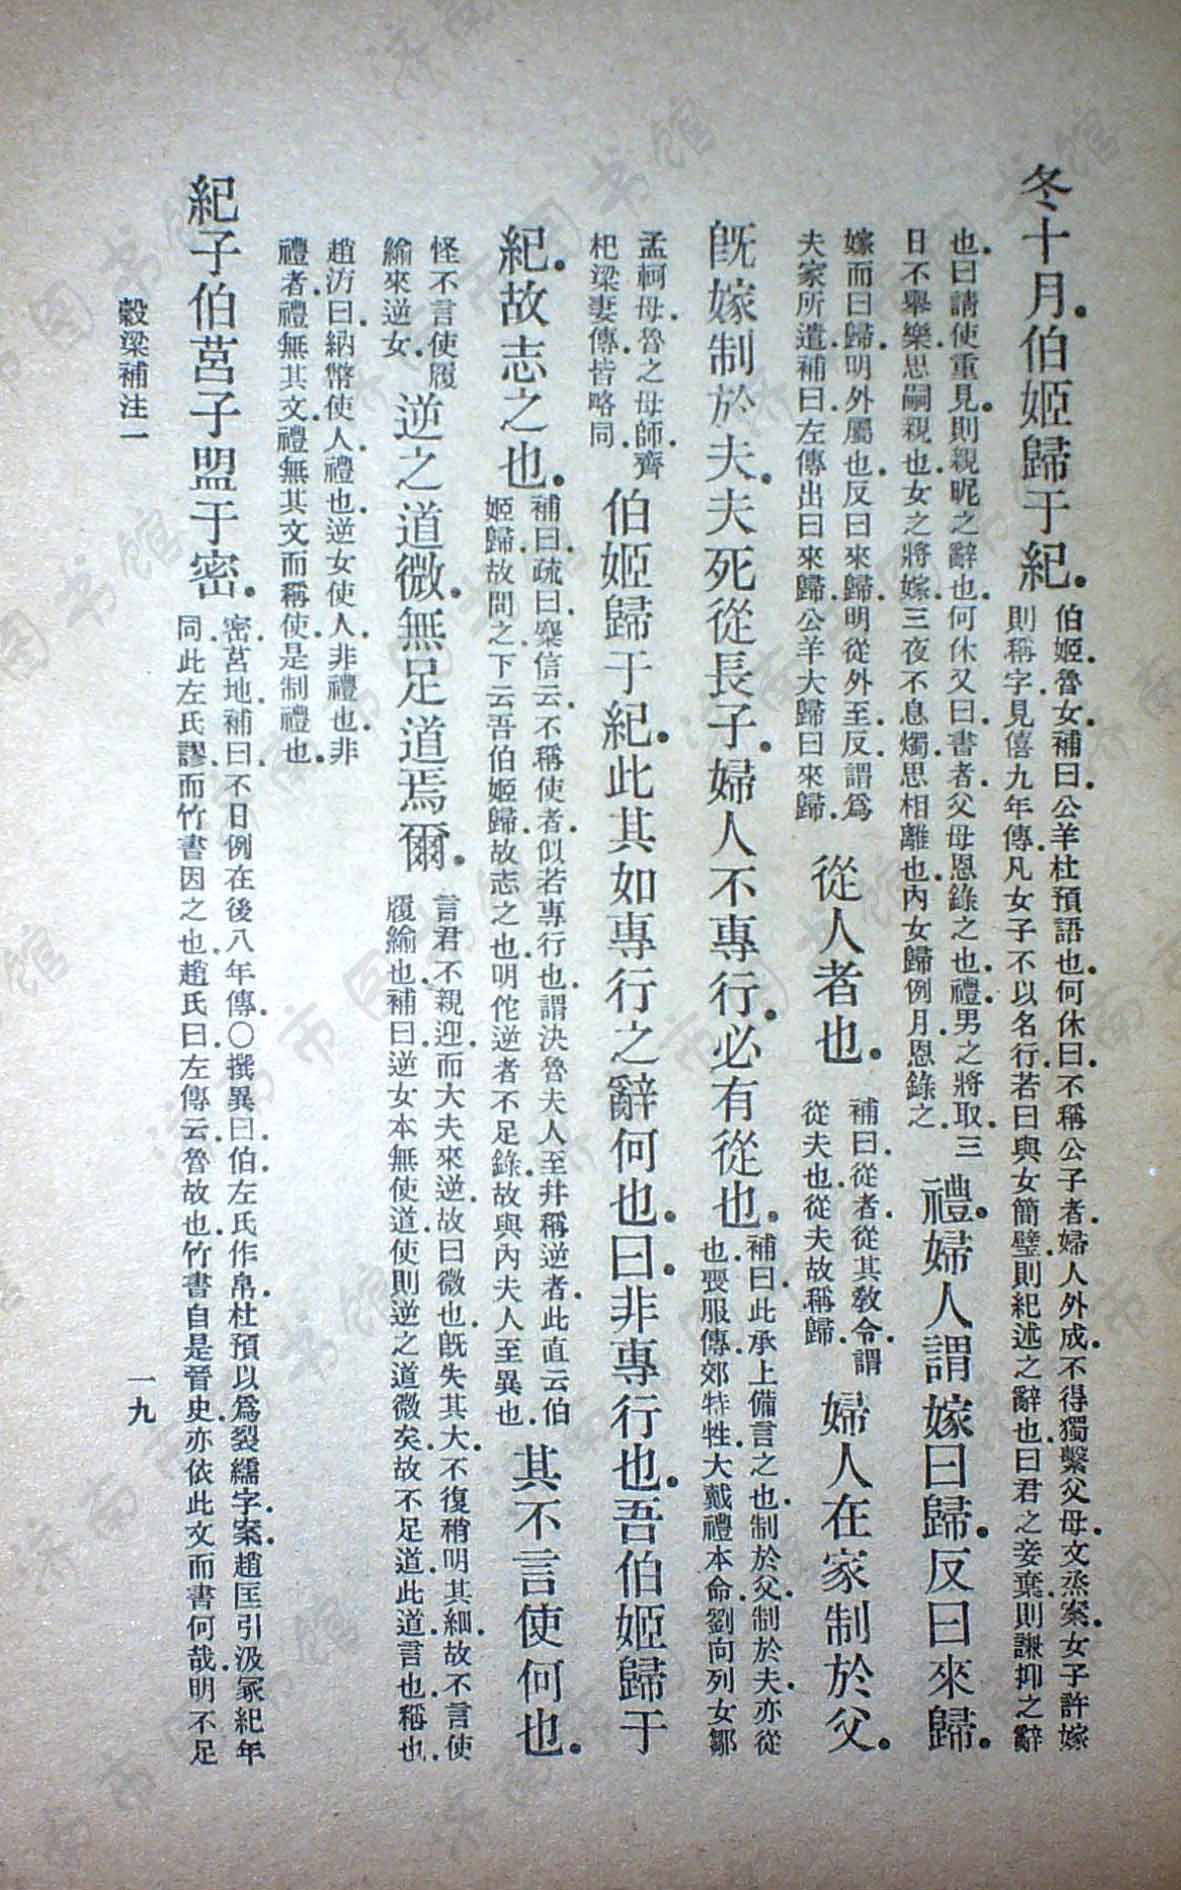 冬十月。伯姬歸于紀。伯姬。魯女。補曰。公羊杜預語也。何休曰。不稱公子者。婦人外成。不得獨繫父母。文烝案。女子許嫁
則稱字。見僖九年傳。凡女子不以名行。若曰與女簡璧。則紀述之辭也。曰君之妾棄。則謙抑之辭
也。曰請使重見。則親昵之辭也。何休又曰。書者。父母恩錄之也。禮。男之將取。三
日不舉樂。思嗣親也。女之將嫁。三夜不息燭。思相離也。內女歸例月。恩錄之。禮。婦人謂嫁曰歸。反曰來歸。
嫁而曰歸。明外屬也。反曰來歸。明從外至。反。謂爲
夫家所遣。補曰。左傳出曰來歸。公羊大歸曰來歸。從人者也。補曰。從者。從其敎令。謂
從夫也。從夫故稱歸。婦人在家制於父。
既嫁制於夫。夫死從長子。婦人不專行。必有從也。補曰。此承上備言之也。制於父。制於夫。亦從
也。喪服傳。郊特牲。大戴禮本命。劉向列女鄒
孟軻母。魯之母師。齊
杞梁妻傳。皆略同。伯姬歸于紀。此其如專行之辭何也。曰。非專行也。吾伯姬歸于
紀。故志之也。補曰。疏曰。麋信云。不稱使者。似若專行也。謂決魯夫人至幷稱逆者。此直云伯
姬歸。故問之。下云吾伯姬歸。故志之也。明佗逆者不足錄。故與內夫人至異也。其不言使何也。
怪不言使履
緰來逆女。逆之道微。無足道焉爾。言君不親迎而大夫來逆。故曰微也。旣失其大。不復稍明其細。故不言使
履緰也。補曰。逆女本無使道。使則逆之道微矣。故不足道。此道。言也。稱也。
趙汸曰。納幣使人。禮也。逆女使人。非禮也。非
禮者。禮無其文。禮無其文而稱使。是制禮也。
紀子伯莒子盟于密。密。莒地。補曰。不日例在後八年傳。〇撰異曰。伯。左氏作帛。杜預以爲裂繻字。案。趙匡引汲冢紀年
同此。左氏謬。而竹書因之也。趙氏曰。左傳云。魯故也。竹書自是晉史。亦依此文而書何哉。明不足
穀梁補注一
一九